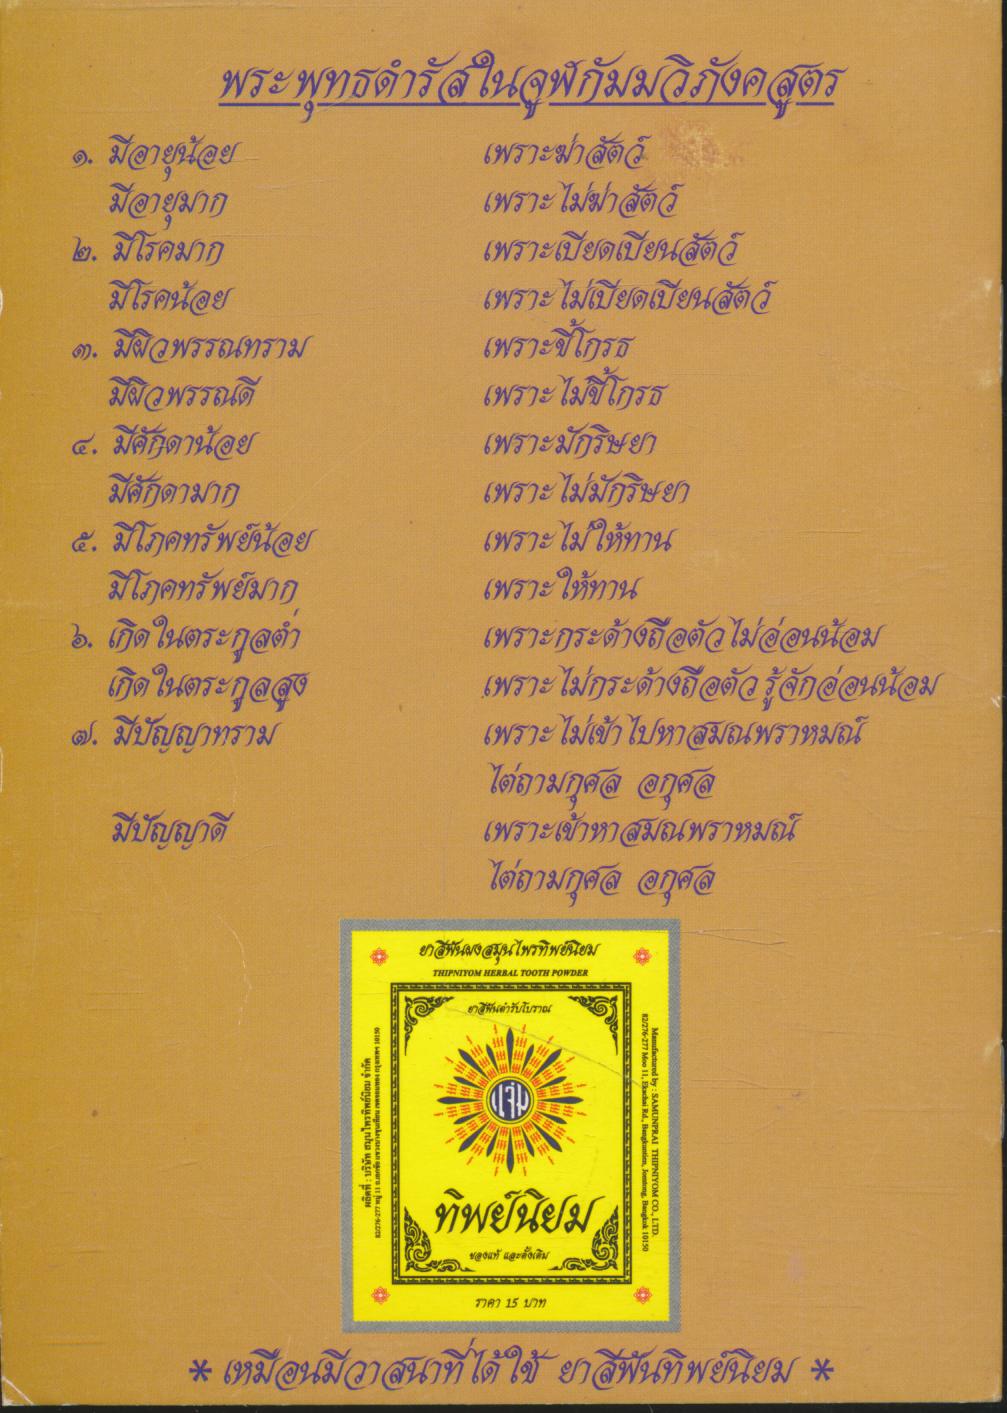 พระพุทธดำรัสในจูฬกัมมวิภังคสูตร
๑. มีอายุน้อย เพราะฆ่าสัตว์
มีอายุมาก เพราะไม่ฆ่าสัตว์
๒. มีโรคมาก เพราะเบียดเบียนสัตว์
มีโรคน้อย เพราะไม่เบียดเบียนสัตว์
๓. มีผิวพรรณทราม เพราะขี้โกรธ
มีผิวพรรณดี เพราะไม่ขี้โกรธ
๔. มีศักดาน้อย เพราะมักริษยา
มีศักดามาก เพราะไม่มักริษยา
๕. มีโภคทรัพย์น้อย เพราะไม่ให้ทาน
มีโภคทรัพย์มาก เพราะให้ทาน
๖. เกิดในตระกูลต่ำ เพราะกระด้างถือตัวไม่อ่อนน้อม
เกิดในตระกูลสูง เพราะไม่กระด้างถือตัว รู้จักอ่อนน้อม
๗. มีปัญญาทราม เพราะไม่เข้าไปหาสมณพราหมณ์
ไต่ถามกุศล อกุศล
มีปัญญาดี เพราะเข้าหาสมณพราหมณ์
ไต่ถามกุศล อกุศล
ยาสีฟันผงสมุนไพรทิพย์นิยม
THIPNIYOM HERBAL TOOTH POWDER
ยาสีฟันตำรับโบราณ
แจ่ม
ทิพย์นิยม
ของแท้ และดั้งเดิม
ราคา 15 บาท
ผลิตที่ : บริษัท สมุนไพรทิพย์นิยม จำกัด
Manufactured by : SAMUNPRAI THIPNIYOM CO., LTD.
82/276-277 Moo 11, Ekachai Rd., Bangkhuntien, Jomtong, Bangkok 10150
* เหมือนมีวาสนาที่ได้ใช้ ยาสีฟันทิพย์นิยม *